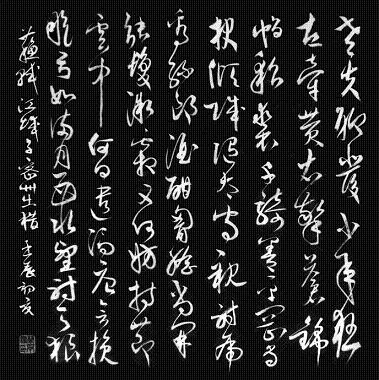 老夫聊發少年狂
左牽黃右擎蒼錦
帽貂裘千騎卷平岡爲
報傾城隨太守親射虎
看孫郎酒酣胸膽尚開
張鬢微霜又何妨持節
雲中何日遣馮唐會挽
雕弓如滿月西北望射天狼
蘇軾江城子密州出獵 壬辰初夏